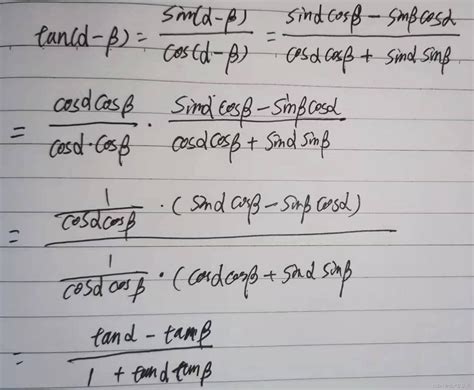 tan(α-β) = sin(α-β)/cos(α-β) = (sinαcosβ - sinβcosα)/(cosαcosβ + sinαsinβ)
= cosαcosβ/cosα·cosβ · (sinαcosβ - sinβcosα)/(cosαcosβ + sinαsinβ)
= 1/cosαcosβ · (sinαcosβ - sinβcosα) / 1/cosαcosβ · (cosαcosβ + sinαsinβ
= (tanα - tanβ)/(1 + tanαtanβ)